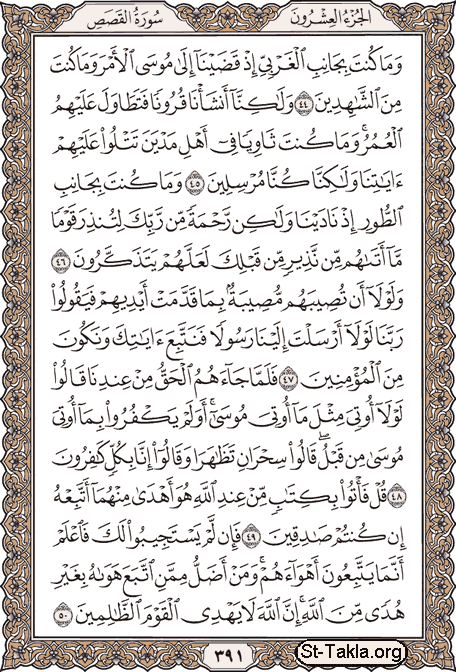 سُورَةُ القَصَصِ
الجُزْءُ العِشْرُونَ
وَمَا كُنتَ بِجَانِبِ ٱلْغَرْبِيِّ إِذْ قَضَيْنَآ إِلَىٰ مُوسَى ٱلْأَمْرَ وَمَا كُنتَ
مِنَ ٱلشَّٰهِدِينَ ٤٤ وَلَٰكِنَّآ أَنشَأْنَا قُرُونًا فَتَطَاوَلَ عَلَيْهِمُ
ٱلْعُمُرُ ۚ وَمَا كُنتَ ثَاوِيًا فِىٓ أَهْلِ مَدْيَنَ تَتْلُوا۟ عَلَيْهِمْ
ءَايَٰتِنَا وَلَٰكِنَّا كُنَّا مُرْسِلِينَ ٤٥ وَمَا كُنتَ بِجَانِبِ
ٱلطُّورِ إِذْ نَادَيْنَا وَلَٰكِن رَّحْمَةً مِّن رَّبِّكَ لِتُنذِرَ قَوْمًا
مَّآ أَتَىٰهُم مِّن نَّذِيرٍ مِّن قَبْلِكَ لَعَلَّهُمْ يَتَذَكَّرُونَ ٤٦
وَلَوْلَآ أَن تُصِيبَهُم مُّصِيبَةٌۢ بِمَا قَدَّمَتْ أَيْدِيهِمْ فَيَقُولُوا۟
رَبَّنَا لَوْلَآ أَرْسَلْتَ إِلَيْنَا رَسُولًا فَنَتَّبِعَ ءَايَٰتِكَ وَنَكُونَ
مِنَ ٱلْمُؤْمِنِينَ ٤٧ فَلَمَّا جَآءَهُمُ ٱلْحَقُّ مِنْ عِندِنَا قَالُوا۟
لَوْلَآ أُوتِىَ مِثْلَ مَآ أُوتِىَ مُوسَىٰٓ ۚ أَوَلَمْ يَكْفُرُوا۟ بِمَآ أُوتِىَ
مُوسَىٰ مِن قَبْلُ ۖ قَالُوا۟ سِحْرَانِ تَظَٰهَرَا وَقَالُوٓا۟ إِنَّا بِكُلٍّ كَٰفِرُونَ
٤٨ قُلْ فَأْتُوا۟ بِكِتَٰبٍ مِّنْ عِندِ ٱللَّهِ هُوَ أَهْدَىٰ مِنْهُمَآ أَتَّبِعْهُ
إِن كُنتُمْ صَٰدِقِينَ ٤٩ فَإِن لَّمْ يَسْتَجِيبُوا۟ لَكَ فَٱعْلَمْ
أَنَّمَا يَتَّبِعُونَ أَهْوَآءَهُمْ ۚ وَمَنْ أَضَلُّ مِمَّنِ ٱتَّبَعَ هَوَىٰهُ بِغَيْرِ
هُدًى مِّنَ ٱللَّهِ ۚ إِنَّ ٱللَّهَ لَا يَهْدِى ٱلْقَوْمَ ٱلظَّٰلِمِينَ ٥٠
٣٩١
St-Takla.org